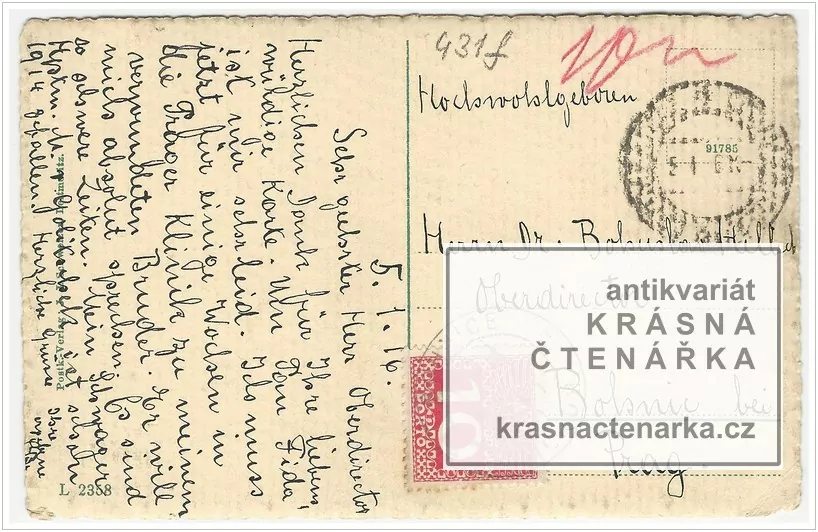 431f
10n
Hochwohlgeboren
91785
Herrn Dr. Bohuslav
Oberdirector
Bohnic bei
Prag.
antikvariát
KRÁSNÁ
ČTENÁŘKA
krasnactenarka.cz
10
PORTO
5. 1. 16.
Sehr geehrter Herr Oberdirector
Herzlichen Dank für Ihre lieben
würdige Karte. Um Frau Fida,
ist mir sehr leid. Ich muss
jetzt für einige Wochen in
die Prager Klinik zu meinem
verwundeten Bruder. Er will
mich absolut sprechen. Es sind
so schwere Zeiten. Mein Schwager
Hptm. ist schon
1914 gefallen. Herzliche Grüsse
Ihre
Postk.-Verlag
L 2358